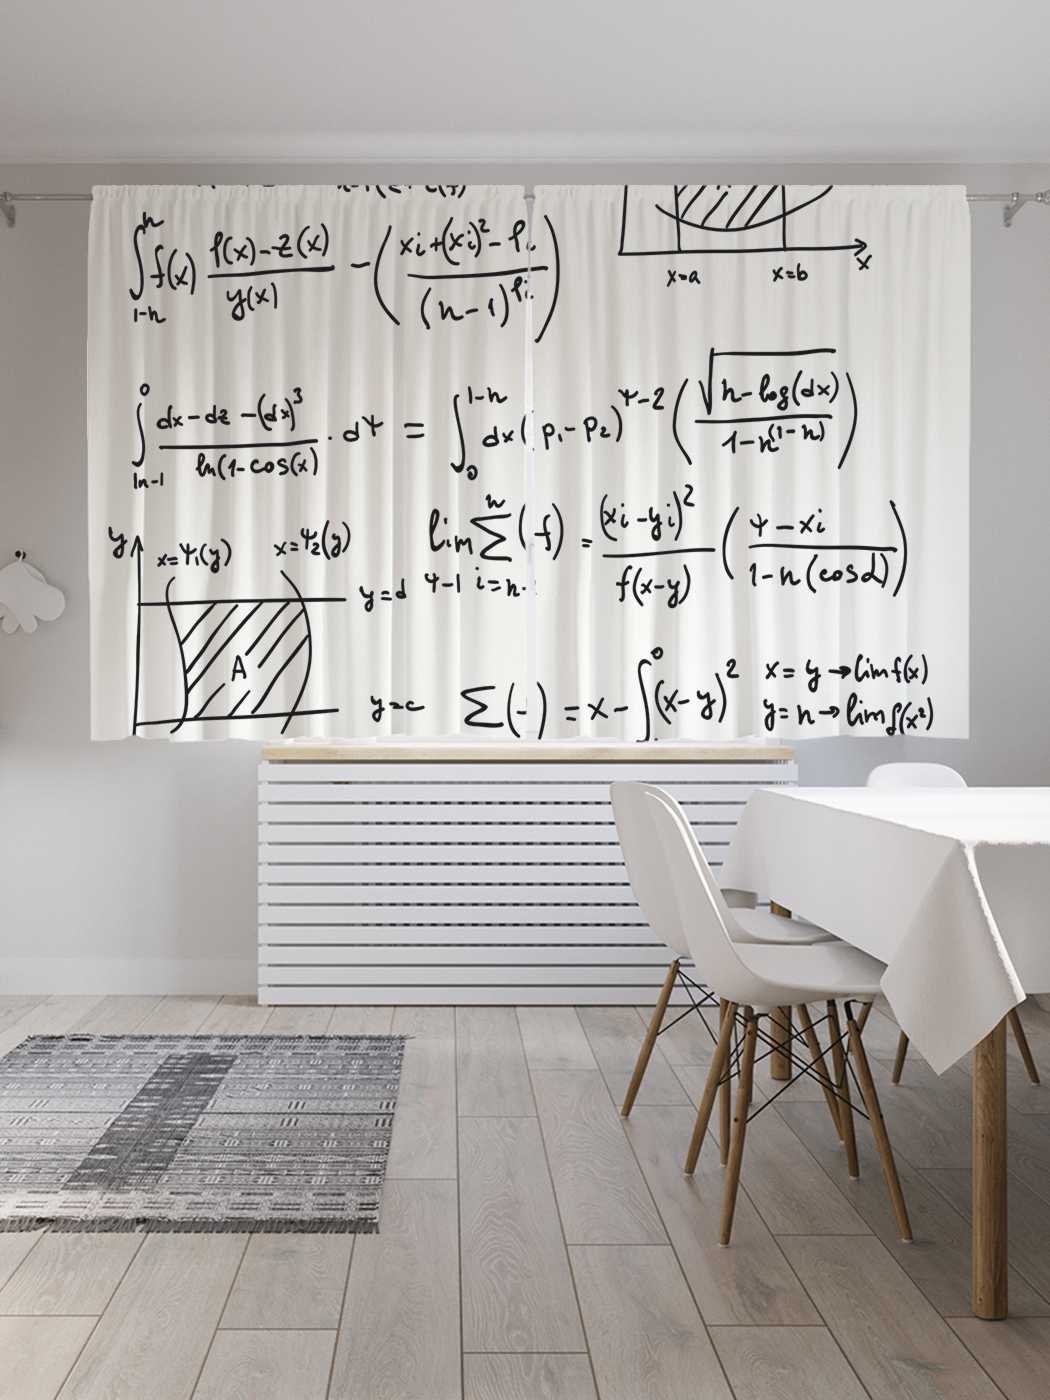 ∫₁₋ₙⁿ f(x) (f(x)-z(x))/(y(x)) - ((xi+(xi)²-Pi)/((n-1)^Pi))
x=a x=b x
∫ₗₙ₋₁⁰ (dx-dz-(dx)³)/(ln(1-cos(x)) · dΨ = ∫₀¹⁻ⁿ dx(p₁-p₂)^(Ψ-2) (√(n-log(dx))/(1-n^(1-n)))
y x=Ψ₁(y) x=Ψ₂(y)
lim Σⁿ (f) = (xi-yi)²/(f(x-y)) ((Ψ-xi)/(1-n(cosd)))
Ψ-1 i=n
y=d
A
y=c
Σ(-) = x-∫⁰(x-y)²
x=y→lim f(x)
y=n→lim f(x²)